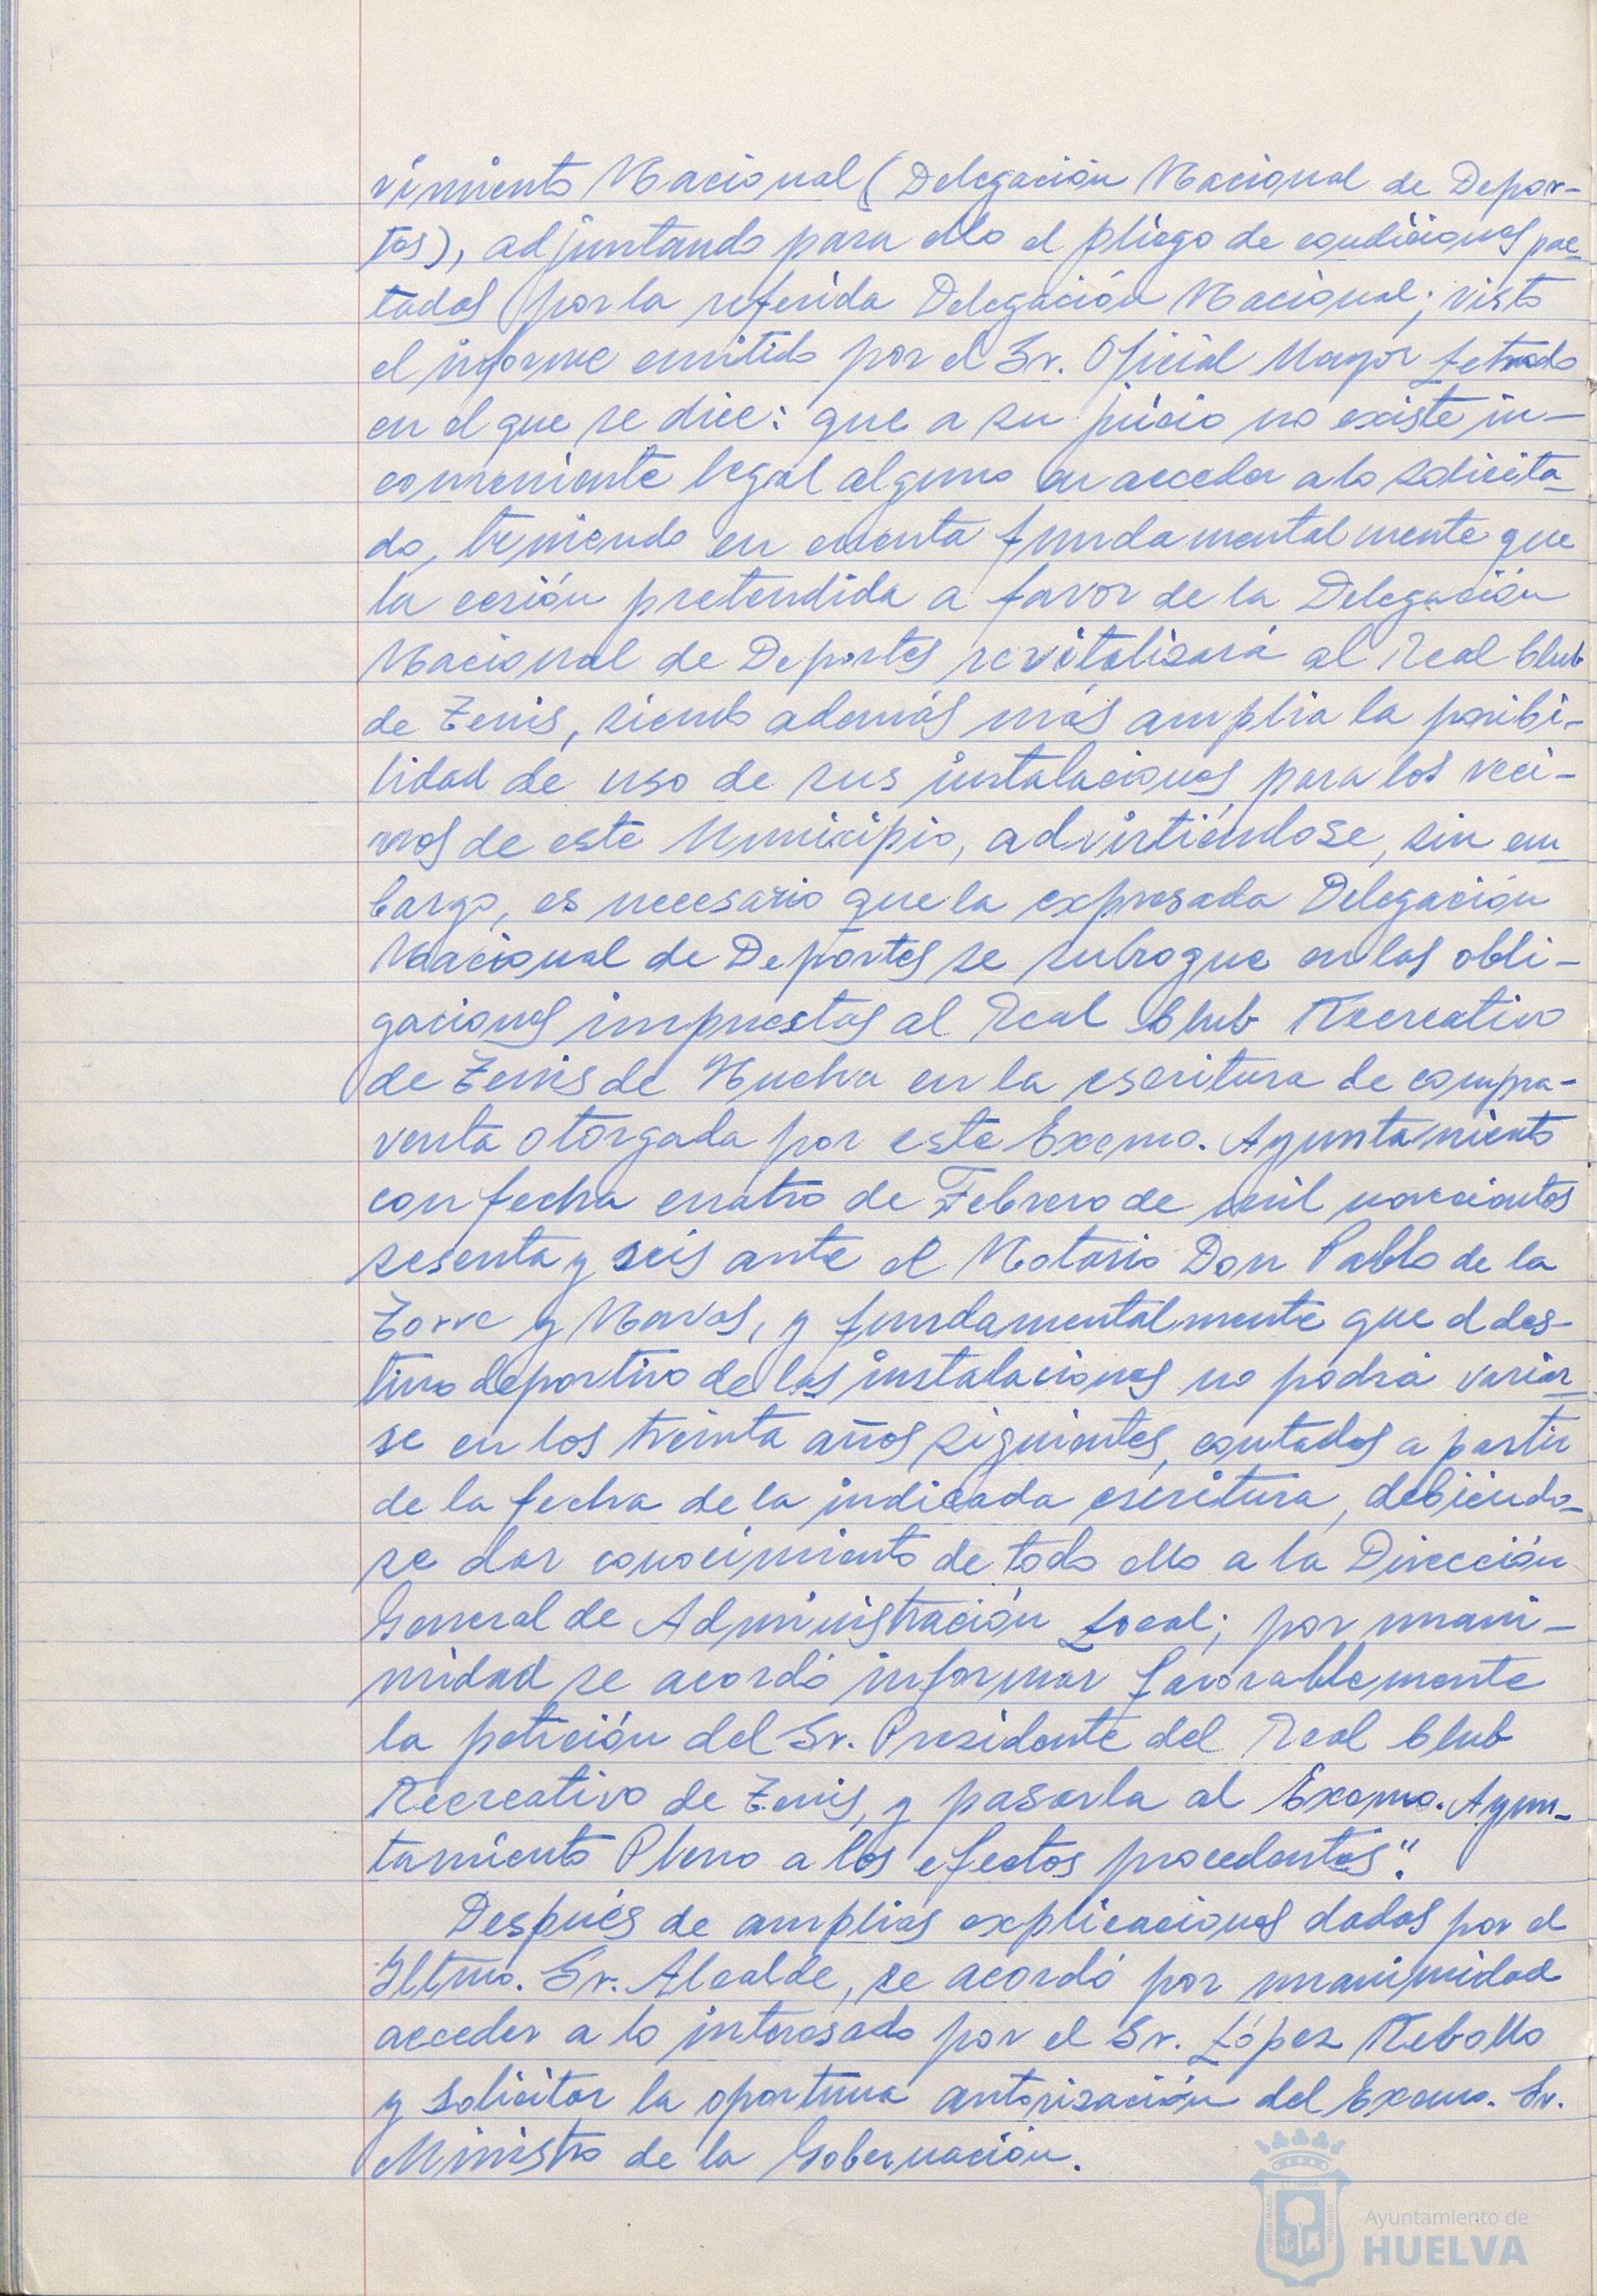 vimiento Nacional (Delegación Nacional de Depor-
tes), adjuntando para ello el pliego de condiciones pac-
tadas por la referida Delegación Nacional; visto
el informe emitido por el Sr. Oficial Mayor Letrado
en el que se dice: que a su juicio no existe in-
conveniente legal alguno en acceder a lo solicita-
do, teniendo en cuenta fundamentalmente que
la cesión pretendida a favor de la Delegación
Nacional de Deportes revitalizará al Real Club
de Tenis, siendo además más amplia la posibi-
lidad de uso de sus instalaciones para los veci-
nos de este Municipio, advirtiéndose, sin em-
bargo, es necesario que la expresada Delegación
Nacional de Deportes se subrogue en las obli-
gaciones impuestas al Real Club Recreativo
de Tenis de Huelva en la escritura de compra-
venta otorgada por este Excmo. Ayuntamiento
con fecha cuatro de Febrero de mil novecientos
sesenta y seis ante el Notario Don Pablo de la
Torre y Navas, y fundamentalmente que el des-
tino deportivo de las instalaciones no podrá variar-
se en los treinta años siguientes, contados a partir
de la fecha de la indicada escritura, debiendo-
se dar conocimiento de todo ello a la Dirección
General de Administración Local; por unani-
midad se acordó informar favorablemente
la petición del Sr. Presidente del Real Club
Recreativo de Tenis, y pasarla al Excmo. Ayun-
tamiento Pleno a los efectos procedentes".
Después de amplias explicaciones dadas por el
Iltmo. Sr. Alcalde, se acordó por unanimidad
acceder a lo interesado por el Sr. López Rebollo
y solicitar la oportuna autorización del Excmo. Sr.
Ministro de la Gobernación.
Ayuntamiento de
HUELVA